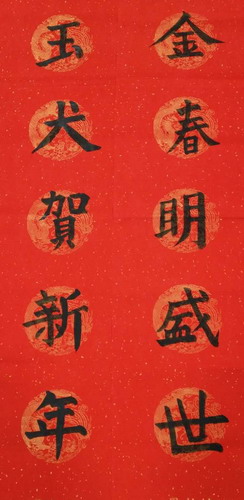 金春明盛世
玉犬賀新年